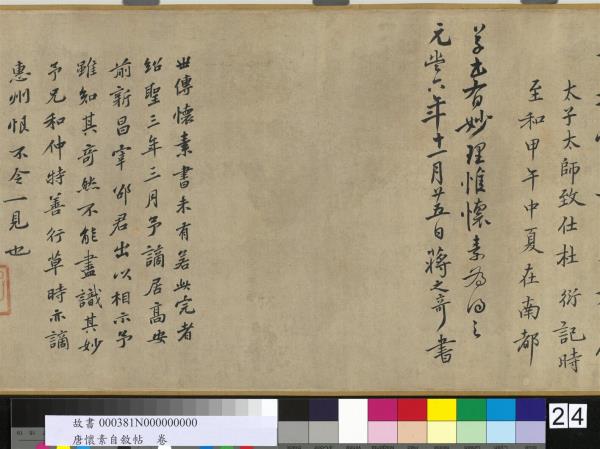 太子太師致仕杜衍記時
至和甲午中夏在南都
草書有妙理惟懷素為得之
元豐六年十一月廿五日蔣之奇書
世傳懷素書未有若此完者
紹聖三年三月予謫居高安
前新昌宰邵君出以相示予
雖知其奇然不能盡識其妙
予兄和仲特善行草時亦謫
惠州恨不令一見也
24
故書 000381N000000000
唐懷素自敘帖 卷